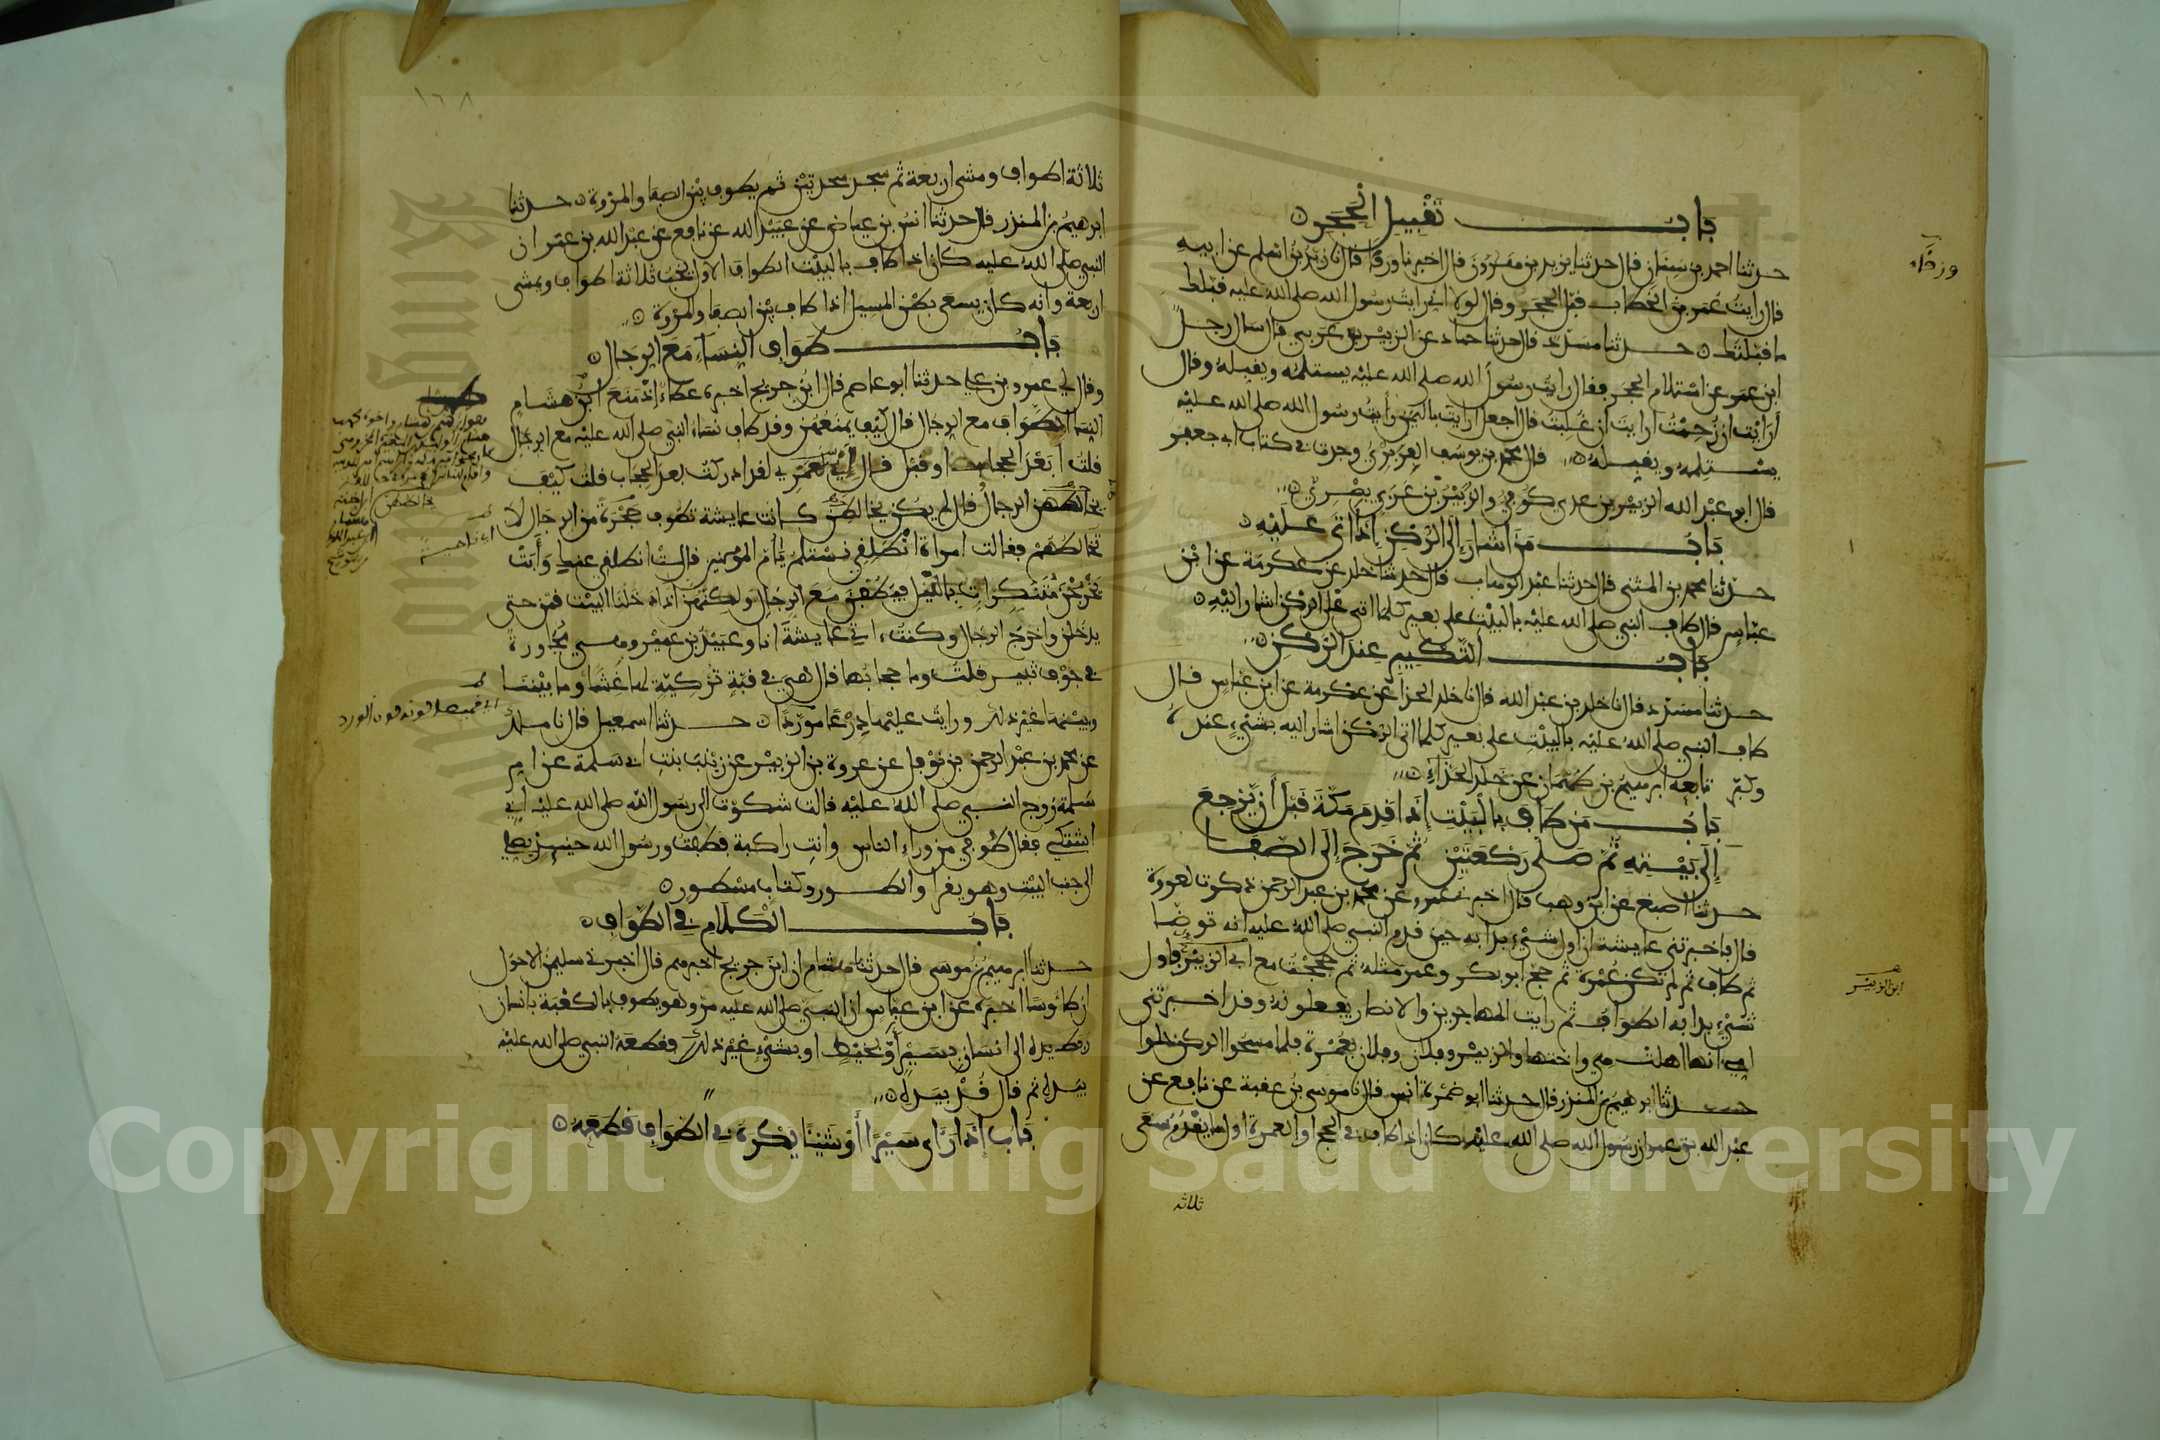 باب تقبيل الحجر
حدثنا احمد بن سنان قال حدثنا يزيد بن هرون قال اخبرنا ورقا قال نا زيد بن اسلم عن ابيه
قال رايت عمر بن الخطاب قبل الحجر وقال لولا اني رايت رسول الله صلى الله عليه قبلك
ما قبلتك حدثنا مسدد قال حدثنا حماد عن الزبير بن عربي قال سال رجل
ابن عمر عن استلام الحجر فقال رايت رسول الله صلى الله عليه يستلمه ويقبله وقال
أرايت ان زحمت ارايت ان غلبت قال اجعل ارايت باليمن رايت رسول الله صلى الله عليه
يستلمه ويقبله قال محمد بن يوسف الفربري وجدت في كتاب ابي جعفر
قال ابو عبد الله الزبير بن عدي كوفي والزبير بن عربي بصري
باب من اشار إلى الركن إذا اتى عليه
حدثنا محمد بن المثنى قال حدثنا عبد الوهاب قال حدثنا خلد عن عكرمة عن ابن
عباس قال طاف النبي صلى الله عليه بالبيت على بعير كلما اتى على الركن اشار اليه
باب التكبير عند الركن
حدثنا مسدد قال نا خلد بن عبد الله قال نا خلد الحذا عن عكرمة عن ابن عباس قال
طاف النبي صلى الله عليه بالبيت على بعير كلما اتى الركن اشار اليه بشيء عنده
وكبر تابعه ابرهيم بن طهمان عن خلد الحذاء
باب من طاف بالبيت إذا قدم مكة قبل أن يرجع
إلى بيته ثم صلى ركعتين ثم خرج إلى الصفا
حدثنا اصبغ عن ابن وهب قال اخبرني عمرو عن محمد بن عبد الرحمن ذكرت لعروة
قال فاخبرتني عايشة ان اول شيء بدا به حين قدم النبي صلى الله عليه انه توضا
ثم طاف ثم لم تكن عمرة ثم حج ابو بكر وعمر مثله ثم حججت مع ابي الزبير فاول
شيء بدا به الطواف ثم رايت المهاجرين والانصار يفعلونه وقد اخبرتني
امي انها اهلت هي واختها والزبير وفلان وفلان بعمرة فلما مسحوا الركن حلوا
حدثنا ابرهيم بن المنذر قال حدثنا ابو ضمرة انس قال نا موسى بن عقبة عن نافع عن
عبد الله بن عمر ان رسول الله صلى الله عليه كان اذا طاف في الحج او العمرة اول ما يقدم سعى
ثلاثة
ابن الزبير
١٦٨
ثلاثة اطواف ومشى اربعة ثم سجد سجدتين ثم يطوف بين الصفا والمروة حدثنا
ابرهيم بن المنذر قال حدثنا انس بن عياض عن عبيد الله عن نافع عن عبد الله بن عمر ان
النبي صلى الله عليه كان اذا طاف بالبيت الطواف الاول يخب ثلاثة اطواف ويمشي
اربعة وانه كان يسعى بطن المسيل اذا طاف بين الصفا والمروة
باب طواف النساء مع الرجال
وقال لي عمرو بن علي حدثنا ابو عاصم قال ابن جريج اخبرني عطاء إذ منع ابن هشام
النساء الطواف مع الرجال قال كيف يمنعهن وقد طاف نساء النبي صلى الله عليه مع الرجال
قلت أبعد الحجاب او قبل قال إي لعمري لقد ادركته بعد الحجاب قلت كيف
يخالطهن الرجال قال لم يكن يخالطن كانت عايشة تطوف حجرة من الرجال لا
تخالطهم فقالت امراة انطلقي نستلم يا ام المؤمنين قالت انطلقي عنك وأبت
يخرجن متنكرات بالليل فيطفن مع الرجال ولكنهن اذا دخلن البيت قمن حتى
يدخلن واخرج الرجال وكنت اتي عايشة انا وعبيد بن عمير وهي مجاورة
في جوف ثبير قلت وما حجابها قال هي في قبة تركية لها غشا وما بيننا
وبينها غير ذلك ورايت عليها درعا موردا حدثنا اسمعيل قال نا ملك
عن محمد بن عبد الرحمن بن نوفل عن عروة بن الزبير عن زينب بنت ابي سلمة عن ام
سلمة زوج النبي صلى الله عليه قالت شكوت الى رسول الله صلى الله عليه اني
اشتكي فقال طوفي من وراء الناس وانت راكبة فطفت ورسول الله حينئذ يصلي
الى جنب البيت وهو يقرا والطور وكتاب مسطور
باب الكلام في الطواف
حدثنا ابرهيم بن موسى قال حدثنا هشام ان ابن جريج اخبرهم قال اخبرني سليمن الاحول
ان طاوسا اخبره عن ابن عباس ان النبي صلى الله عليه مر وهو يطوف بالكعبة بانسان
ربط يده الى انسان بسير أو بخيط او بشيء غير ذلك فقطعه النبي صلى الله عليه
بيده ثم قال قد بيده
باب إذا رأى سيرا أو شيئا يكره في الطواف قطعه
Copyright © King Saud University